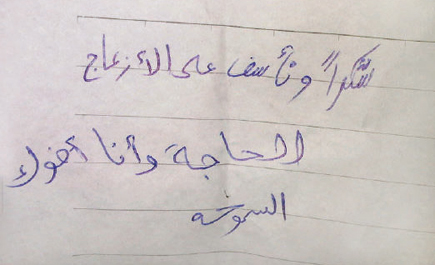 شكراً ونأسف على الأزعاج
الحاجة وأنا أخوك
السموحه